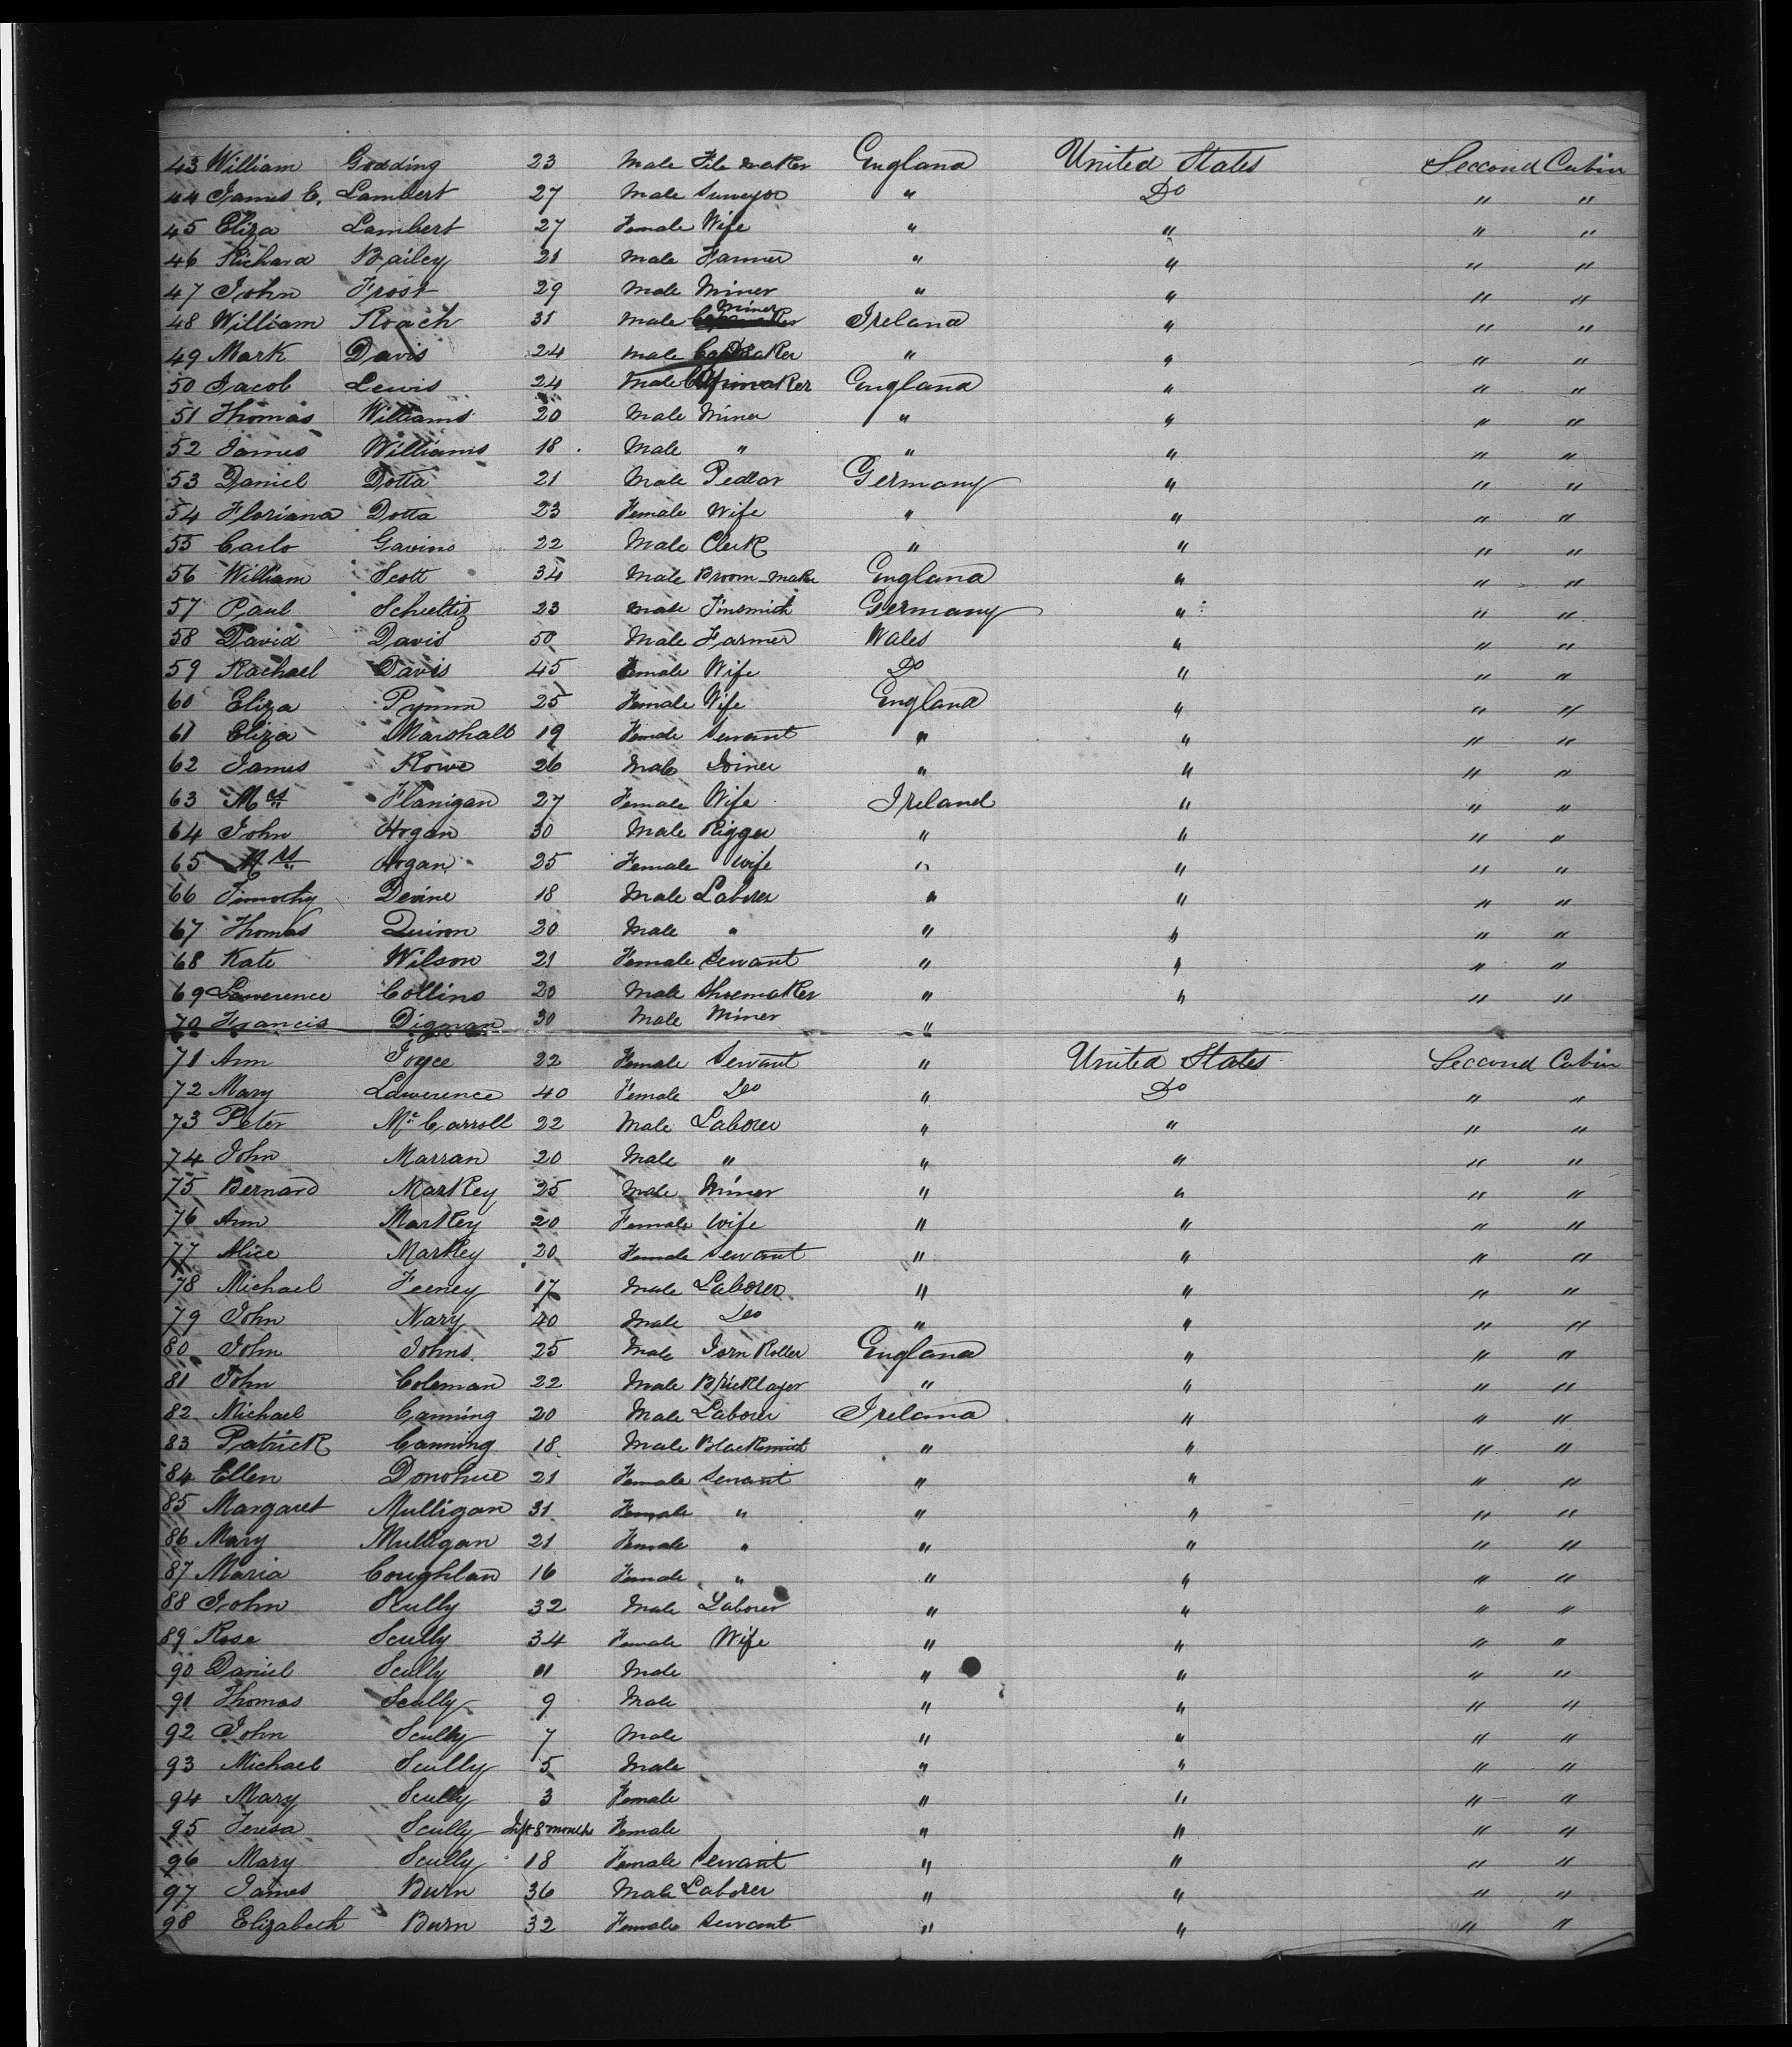 43 William Godding 23 Male File maker England United States Second Cabin
44 James C. Lambert 27 Male Surveyor " Do " "
45 Eliza Lambert 27 Female Wife " " " "
46 Richard Bailey 21 Male Farmer " " " "
47 John Frost 29 Male Miner " " " "
48 William Roach 31 Male Miner Ireland " " "
49 Mark Davis 24 Male Capmaker " " " "
50 Jacob Lewis 24 Male England " " "
51 Thomas Williams 20 Male Miner " " " "
52 James Williams 18 Male " " " " "
53 Daniel Dotta 21 Male Pedlar Germany " " "
54 Floriana Dotta 23 Female Wife " " " "
55 Carlo Gavino 22 Male Clerk " " " "
56 William Scott 34 Male Broom-maker England " " "
57 Paul Schieltiz 23 Male Tinsmith Germany " " "
58 David Davis 50 Male Farmer Wales " " "
59 Rachael Davis 45 Female Wife Do " " "
60 Eliza Pymm 25 Female Wife England " " "
61 Eliza Marshall 19 Female Servant " " " "
62 James Rowe 26 Male Joiner " " " "
63 Mrs Flanigan 27 Female Wife Ireland " " "
64 John Hogan 30 Male Rigger " " " "
65 Mrs Hogan 25 Female Wife " " " "
66 Timothy Devine 18 Male Laborer " " " "
67 Thomas Quinn 20 Male " " " " "
68 Kate Wilson 21 Female Servant " " " "
69 Lawerence Collins 20 Male Shoemaker " " " "
70 Francis Digman 30 Male Miner "
71 Ann Joyce 22 Female Servant " United States Second Cabin
72 Mary Lawerence 40 Female Do " Do " "
73 Peter McCarroll 22 Male Laborer " " " "
74 John Marran 20 Male " " " " "
75 Bernard Markey 25 Male Miner " " " "
76 Ann Markey 20 Female Wife " " " "
77 Alice Markey 20 Female Servant " " " "
78 Michael Feeney 17 Male Laborer " " " "
79 John Nary 40 Male Do " " " "
80 John Johns 25 Male Iorn Roller England " " "
81 John Coleman 22 Male Bricklayer " " " "
82 Michael Canning 20 Male Laborer Ireland " " "
83 Patrick Canning 18 Male Blacksmith " " " "
84 Ellen Donohue 21 Female Servant " " " "
85 Margaret Mulligan 31 Female " " " " "
86 Mary Mulligan 21 Female " " " " "
87 Maria Coughlan 16 Female " " " " "
88 John Scully 32 Male Laborer " " " "
89 Rose Scully 34 Female Wife " " " "
90 Daniel Scully 11 Male " " " "
91 Thomas Scully 9 Male " " " "
92 John Scully 7 Male " " " "
93 Michael Scully 5 Male " " " "
94 Mary Scully 3 Female " " " "
95 Teresa Scully Inft 8 months Female " " " "
96 Mary Scully 18 Female Servant " " " "
97 James Burn 36 Male Laborer " " " "
98 Elizabeth Burn 32 Female Servant " " " "